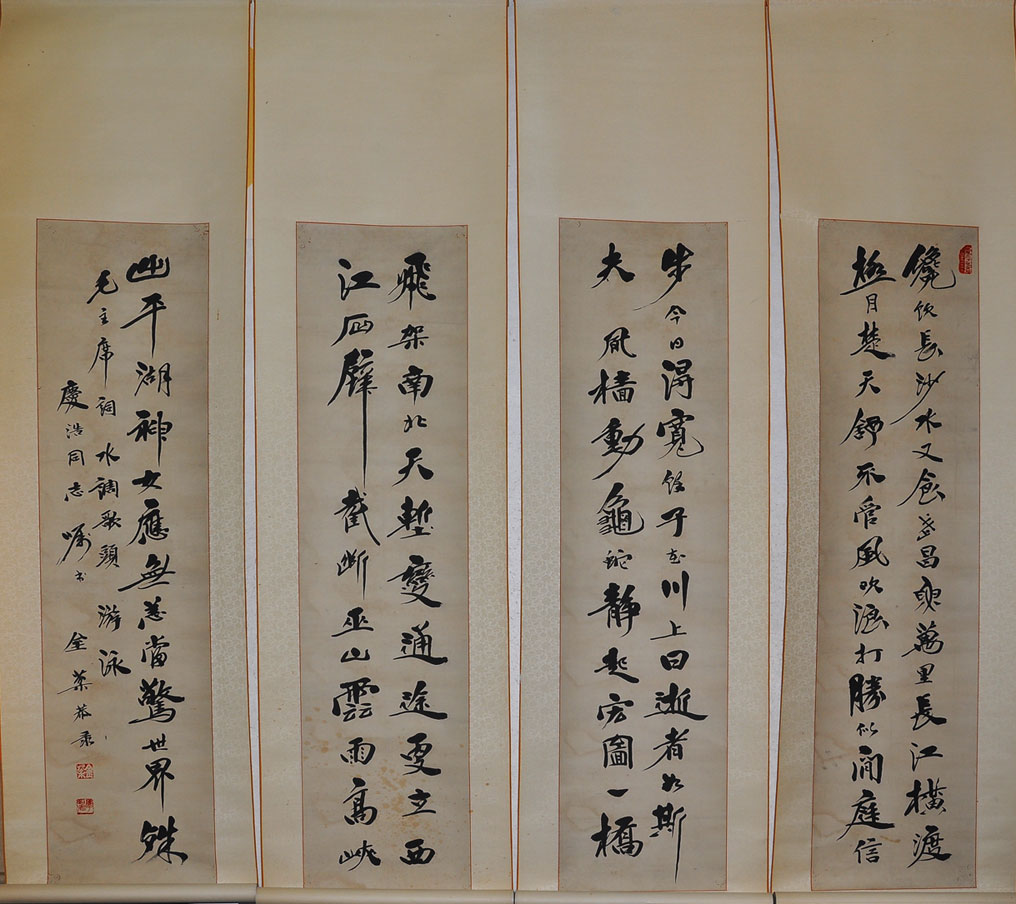 纔飲長沙水又食武昌魚萬里長江橫渡
極目楚天舒不管風吹浪打勝似閒庭信
步今日得寬餘子在川上曰逝者如斯
夫 風檣動龜蛇靜起宏圖一橋
飛架南北天塹變通途更立西
江石壁截斷巫山雲雨高峽
出平湖神女應無恙當驚世界殊
毛主席詞 水調歌頭 游泳
慶浩同志囑書 葉恭